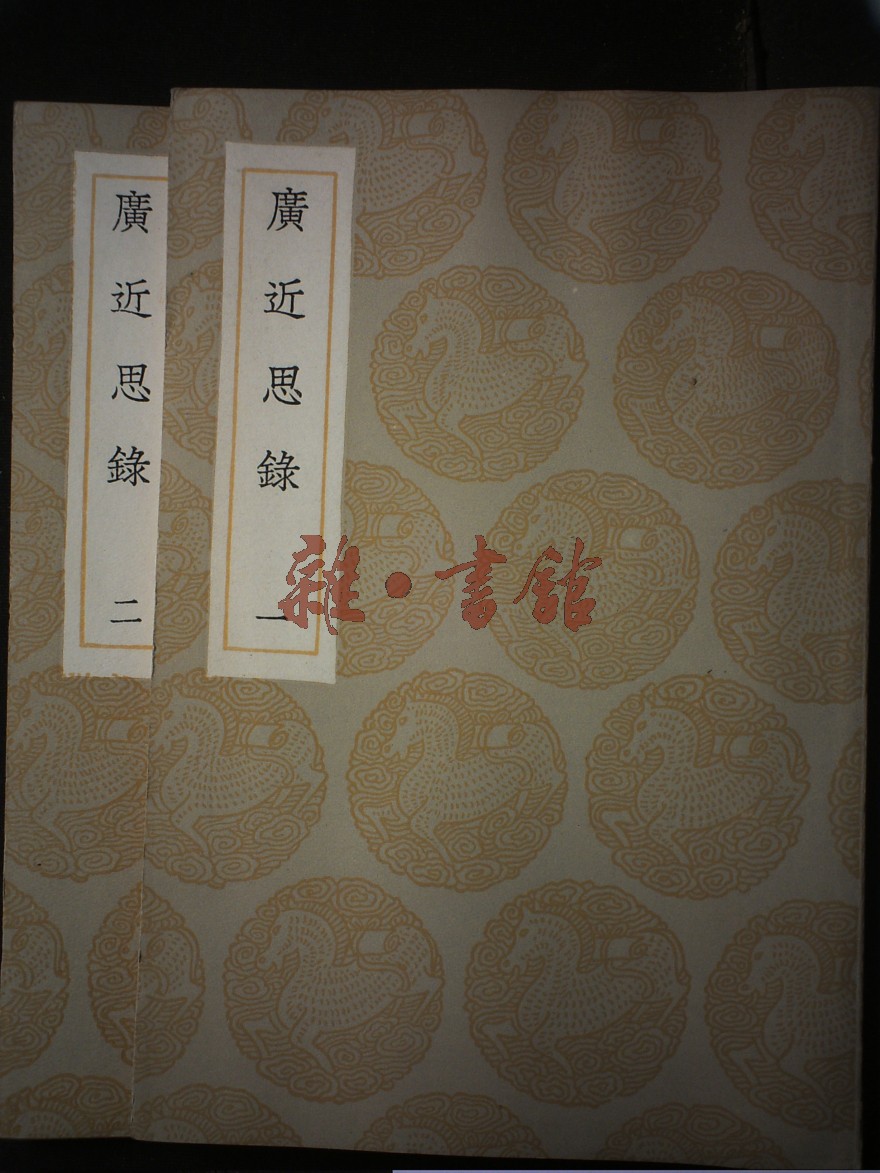 廣近思錄 一
廣近思錄 二
雜·書館